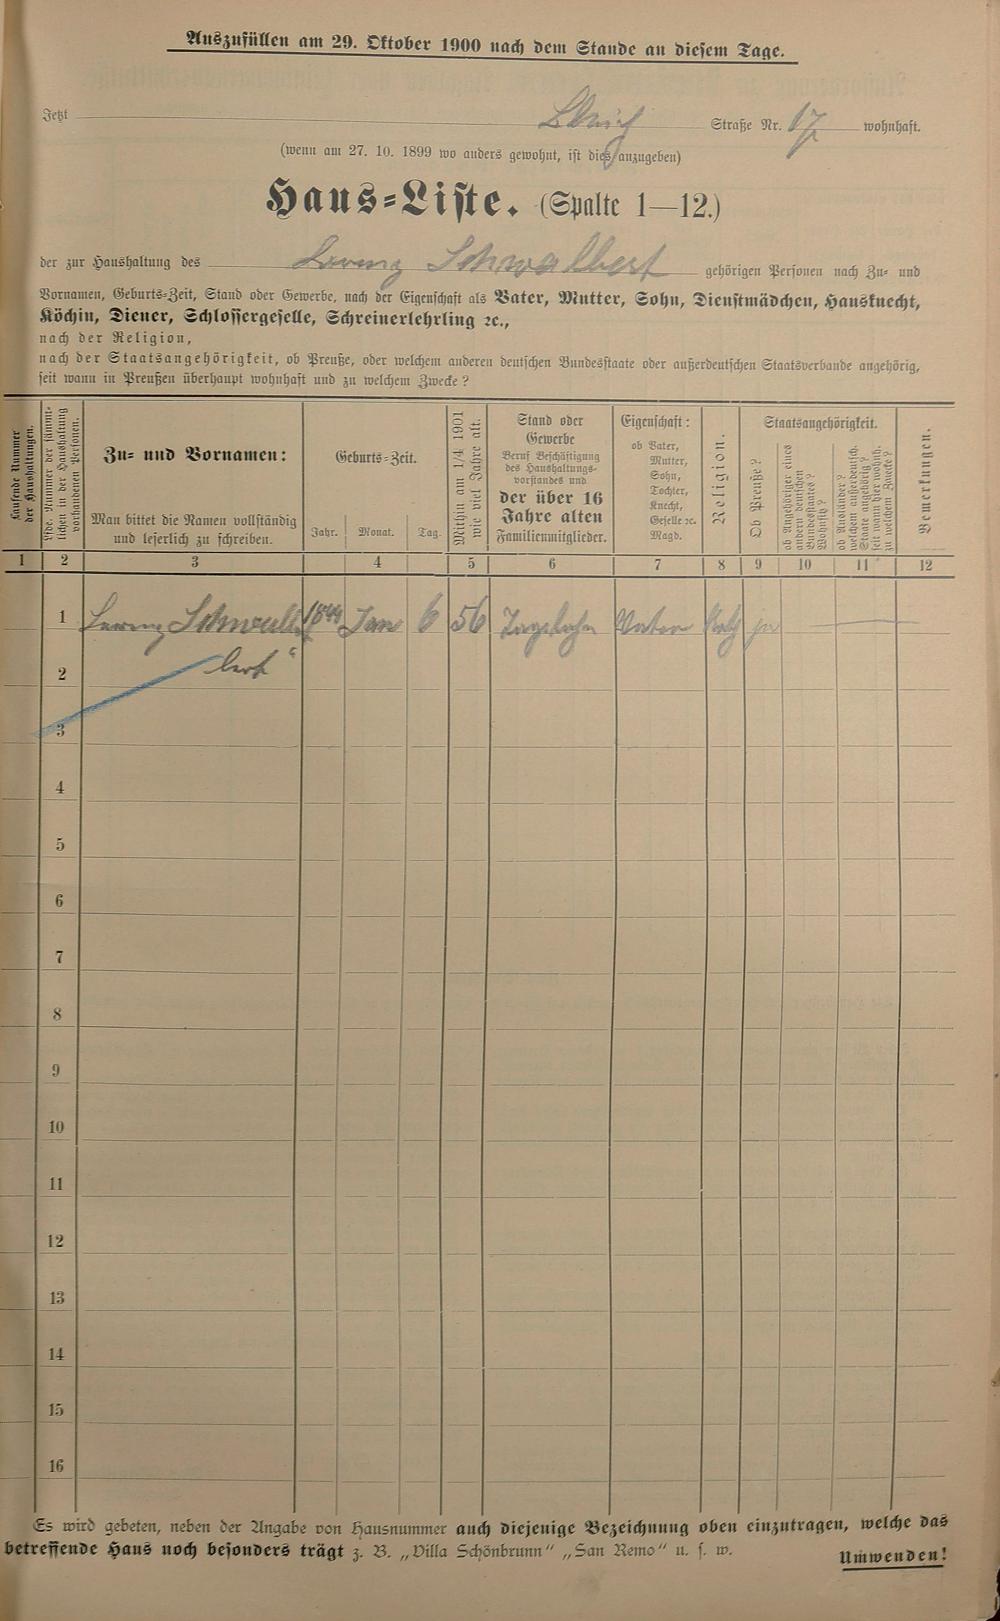 Auszufüllen am 29. Oktober 1900 nach dem Stande an diesem Tage.
Jetzt Straße Nr. 17 wohnhaft.
(wenn am 27. 10. 1899 wo anders gewohnt, ist dies anzugeben)
Haus-Liste. (Spalte 1—12.)
der zur Haushaltung des Lorenz Schwalbert gehörigen Personen nach Zu- und
Vornamen, Geburts-Zeit, Stand oder Gewerbe, nach der Eigenschaft als Vater, Mutter, Sohn, Dienstmädchen, Hausknecht,
Köchin, Diener, Schlossergeselle, Schreinerlehrling ꝛc.,
nach der Religion,
nach der Staatsangehörigkeit, ob Preuße, oder welchem anderen deutschen Bundesstaate oder außerdeutschen Staatsverbande angehörig,
seit wann in Preußen überhaupt wohnhaft und zu welchem Zwecke?
Laufende Nummer
der Haushaltungen.
Lfde. Nummer der sämmt-
lichen in der Haushaltung
vorhandenen Personen.
Zu- und Vornamen:
Man bittet die Namen vollständig
und leserlich zu schreiben.
Geburts-Zeit.
Jahr. Monat. Tag.
Mithin am 1/4 1901
wie viel Jahre alt.
Stand oder
Gewerbe
Beruf Beschäftigung
des Haushaltungs-
vorstandes und
der über 16
Jahre alten
Familienmitglieder.
Eigenschaft:
ob Vater,
Mutter,
Sohn,
Tochter,
Knecht,
Geselle ꝛc.
Magd.
Religion.
Staatsangehörigkeit.
Ob Preuße?
ob Angehöriger eines
andern deutschen
Bundesstaates?
Wohnsitz?
ob Ausländer?
welchem außerdeutsch.
Staate angehörig?
seit wann hier wohnh.
zu welchem Zwecke?
Bemerkungen.
1 2 3 4 5 6 7 8 9 10 11 12
1 Lorenz Schwall 1844 Jan 6 56 Taglohn Vater Kath ja
2 bert "
3
4
5
6
7
8
9
10
11
12
13
14
15
16
Es wird gebeten, neben der Angabe von Hausnummer auch diejenige Bezeichnung oben einzutragen, welche das
betreffende Haus noch besonders trägt z. B. „Villa Schönbrunn“ „San Remo“ u. s. w.
Umwenden!